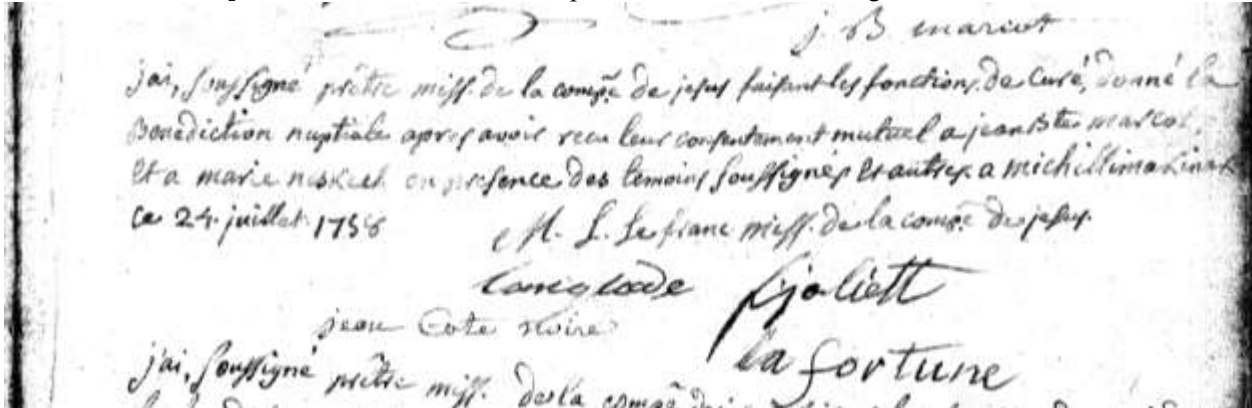 j. B marcot
jai, soussigné prêtre miss. de la compe. de jesus faisant les fonctions de Curé, donné la
Benediction nuptiale apres avoir recu leur consentement mutuel a jean Bte marcot,
Et a marie neskeek en presence des temoins soussignés Et autres a michillimakinak
ce 24. juillet 1758
M. L. Lefranc miss. de la compe. de jesus.
Langlade
joliett
jean Cote noire
la fortune
jai, soussigné prêtre miss. de la compe.